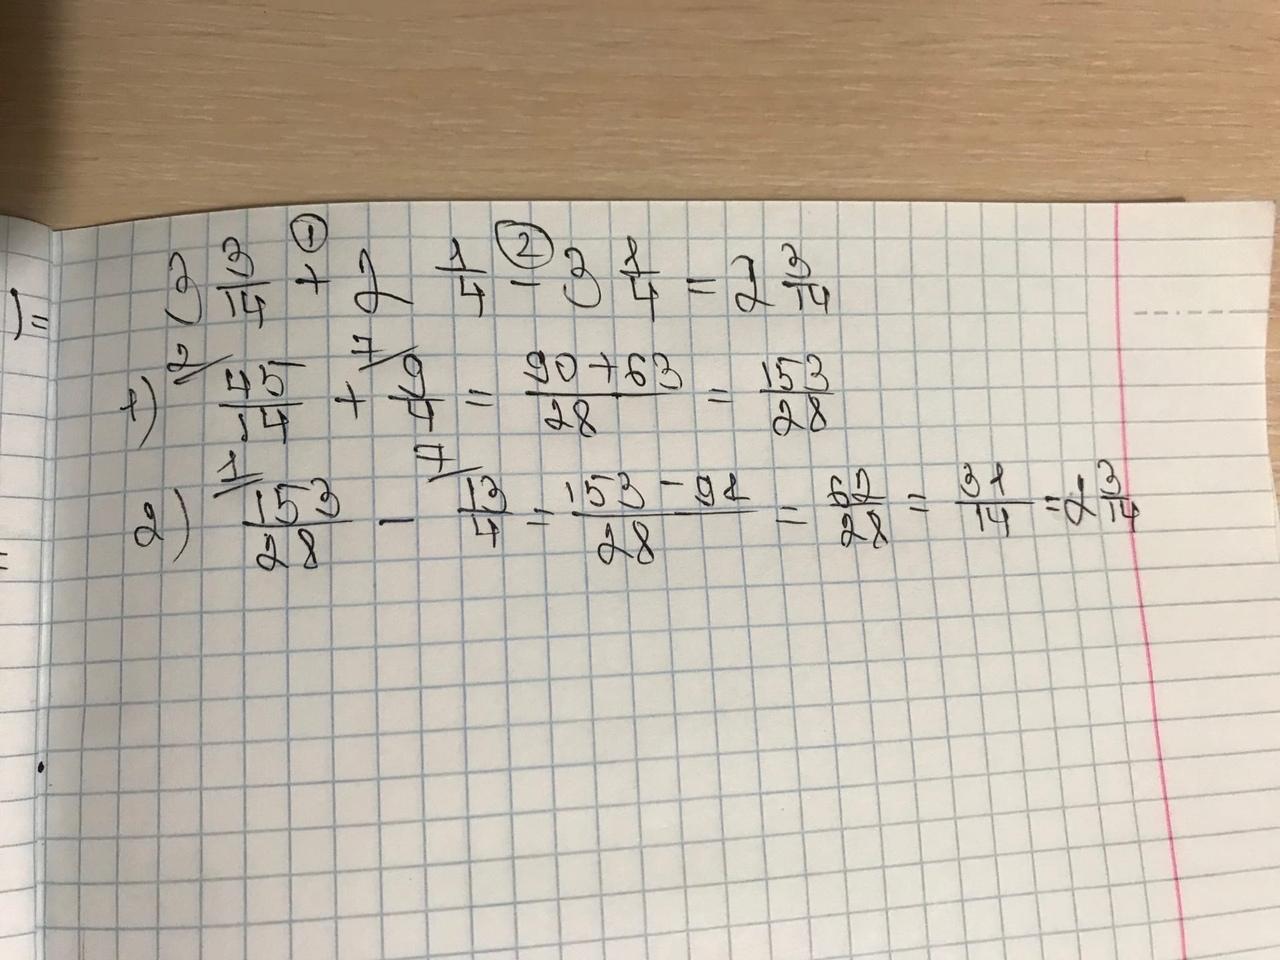 3 3/14 + 2 1/4 - 3 1/4 = 2 3/14
1) 45/14 + 9/4 = 90+63/28 = 153/28
2) 153/28 - 13/4 = 153-91/28 = 62/28 = 31/14 = 2 3/14